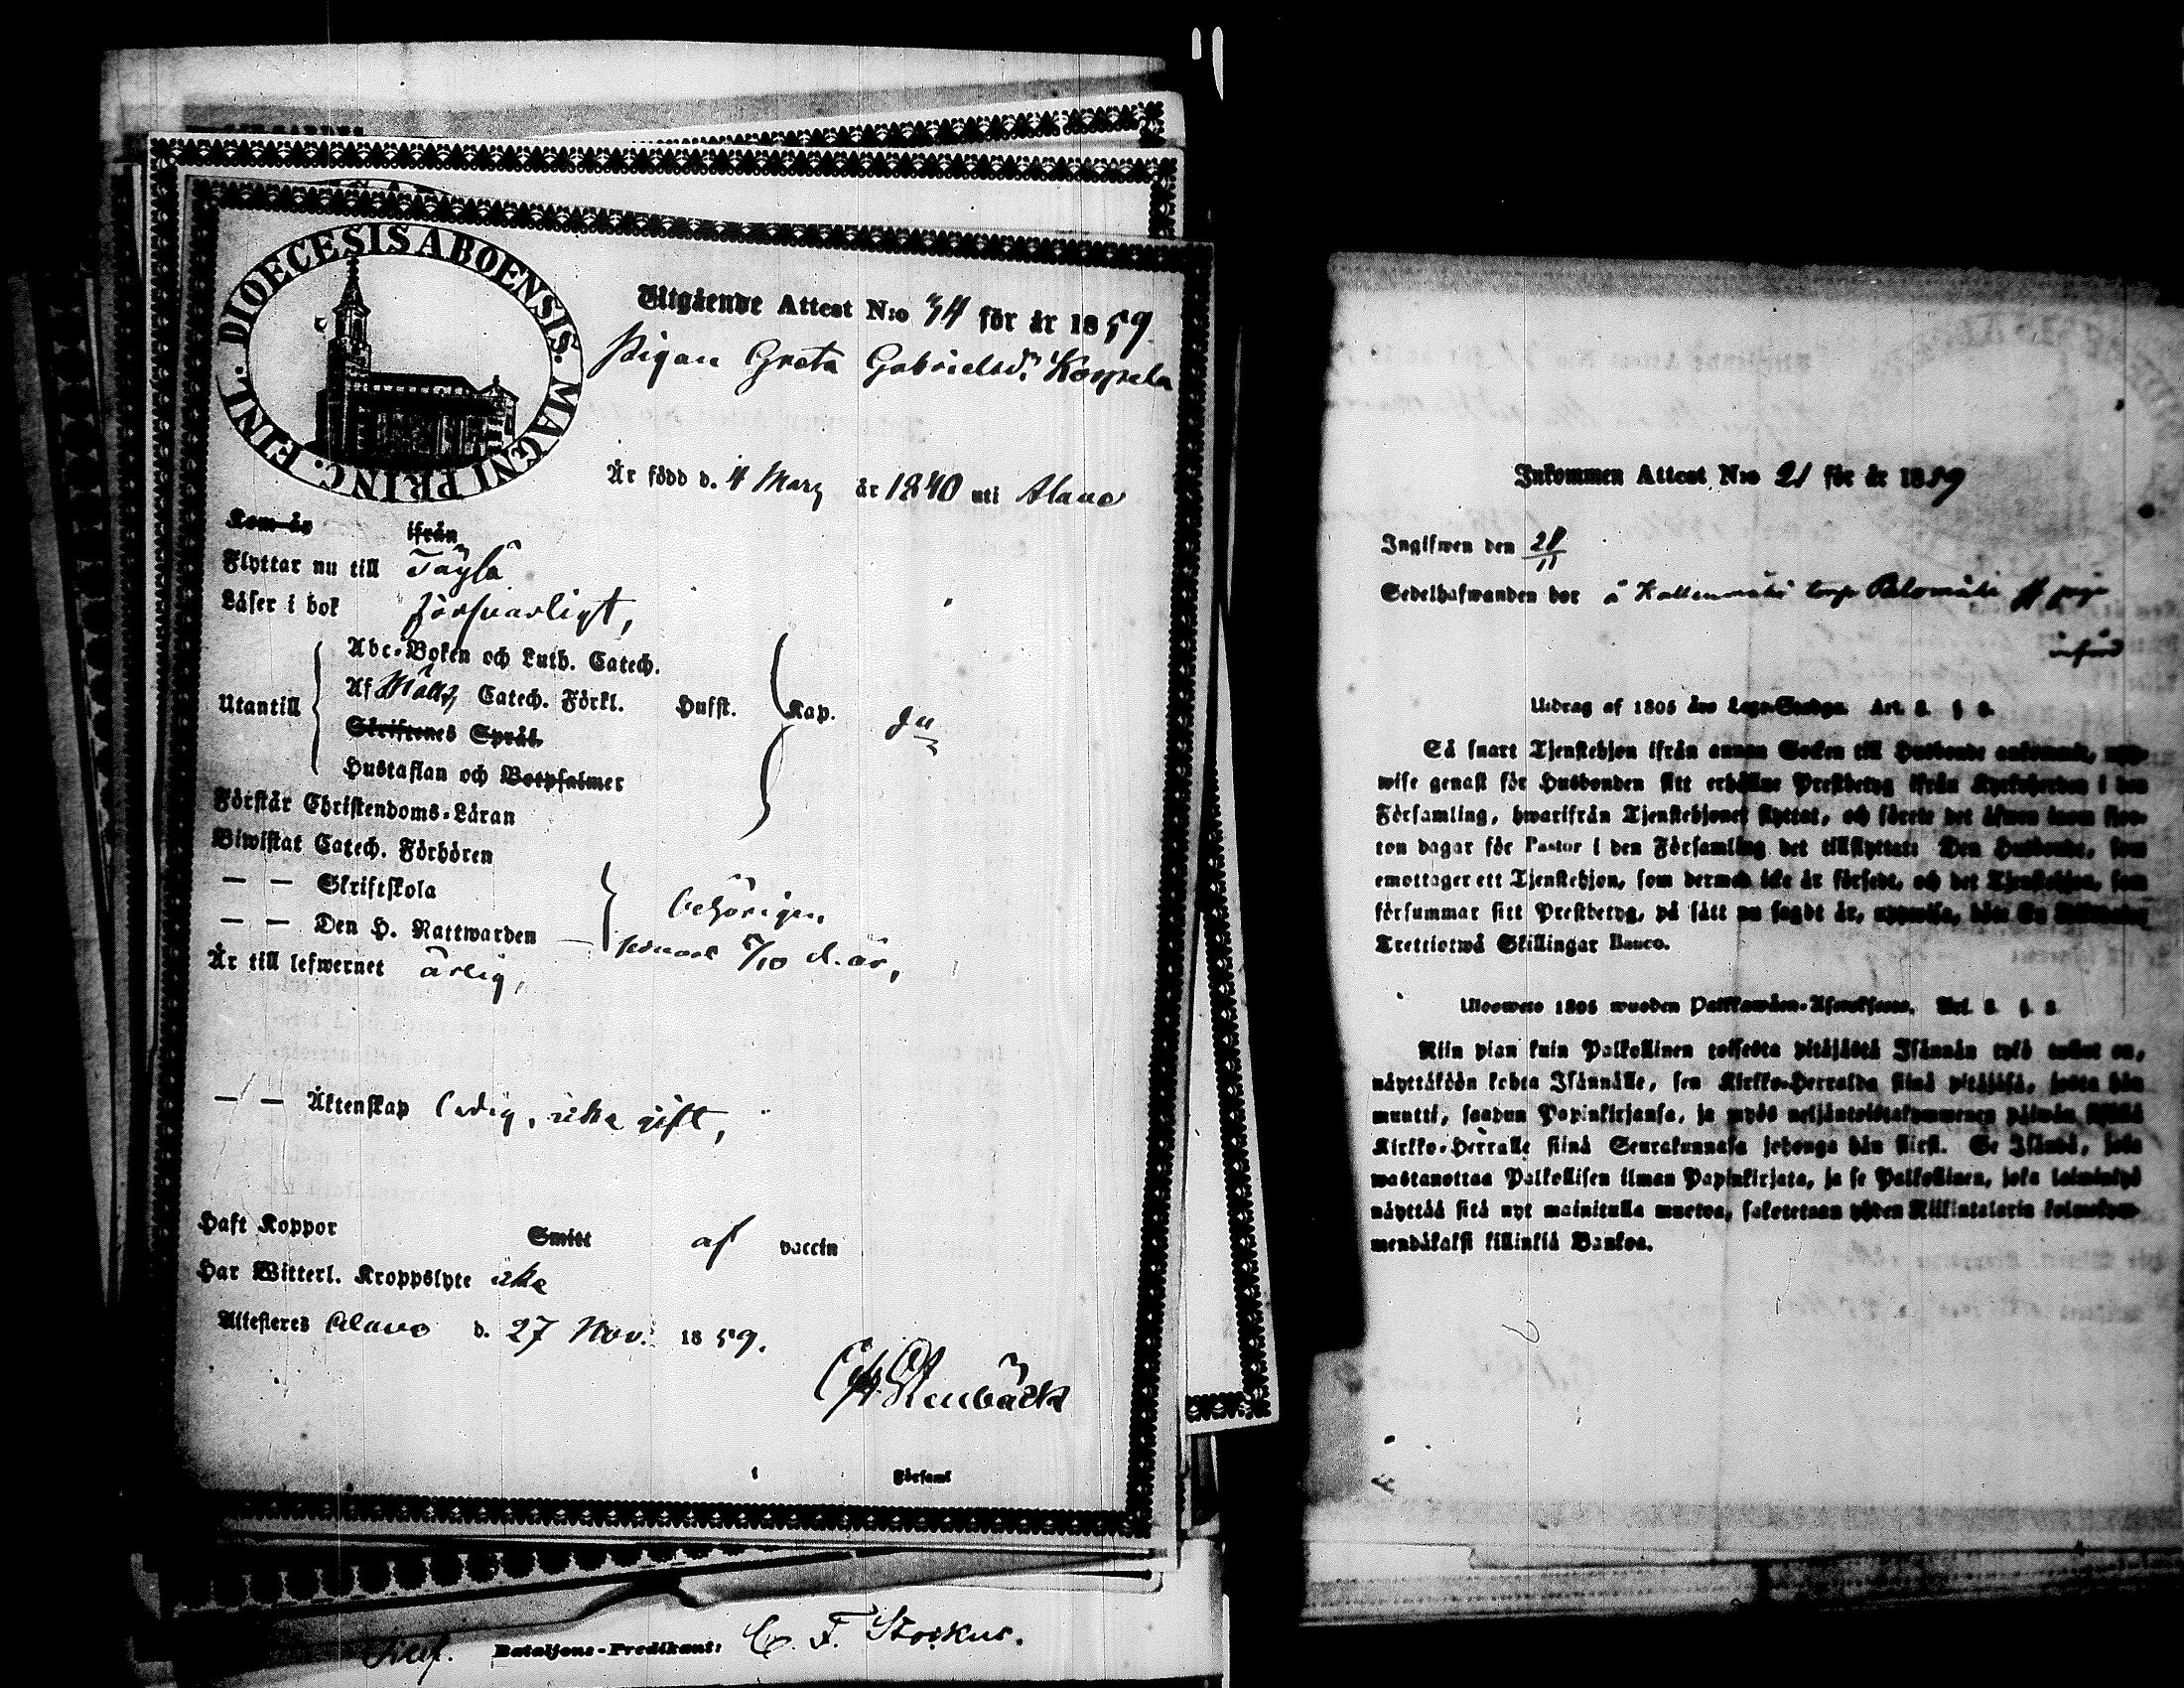 DIOECESIS ABOENSIS. MAGNI PRINC. FINL.
Utgående Attest N:o 34 för år 1859.
Pigan Greta Gabrielsd:r Korpela
Är född d. 4 Marz år 1840 uti Alavo
Kom år ifrån
Flyttar nu till Töysä
Läser i bok försvarligt,
Abc-Boken och Luth. Catech.
Utantill Af Möllz Catech. Förkl. Hufst. Kap.
Skriftenes Språk
Hustaflan och Botpsalmer
Förstår Christendoms-Läran
Biwistat Catech. Förhören
— — Skriftskola behörigen
— — Den H. Nattwarden senast 9/10 d. år,
Är till lefwernet ärlig,
— — Äktenskap ledig, icke gift,
Haft Koppor Smitt af vaccin
Har Witterl. Kroppslyte icke
Attesteres Alavo d. 27 Nov. 1859.
Stenbäck
Församl
Bataljons-Predikant: C. F. Storkus.
Inkommen Attest N:o 21 för år 1859
Ingifwen den 28/11
Sedelhafwanden bor å torp
införd
Utdrag af 1805 års Lego-Stadga. Art. 2. §
Så snart Tjenstehjon ifrån annan Socken till Husbonde ankommit, upp-
wise genast för Husbonden sitt erhållne Prestbetyg ifrån Kyrkoherden i den
Församling, hwarifrån Tjenstehjonet flyttat, och förete det äfwen inom fjor-
ton dagar för Pastor i den Församling det tillflyttat: Den Husbonde, som
emottager ett Tjenstehjon, som dermed icke är försedt, och det Tjenstehjon, som
försummar sitt Prestbetyg, på sätt nu sagdt är, uppwisa, böte En Riksdaler
Trettiotwå Skillingar Banco.
Ulosweto 1805 wuoden Palkkawäen-Asetuksesta. Art. 2. §
Niin pian kuin Palkollinen toisesta pitäjästä Isännän tykö tullut on,
näyttäköön kohta Isännälle, sen Kirkko-Herralda siinä pitäjäsä, josta hän
muutti, saadun Papinkirjansa, ja myös neljäntoistakymmenen päiwän sisällä
Kirkko-Herralle siinä Seurakunnasa johonga hän siirsi. Se Isändä, joka
wastanottaa Palkollisen ilman Papinkirjata, ja se Palkollinen, joka laiminlyö
näyttää sitä nyt mainitulla muotoa, sakotetaan yhden Riksintalarin kolmekym-
mendäkaksi killinkiä Bankoa.